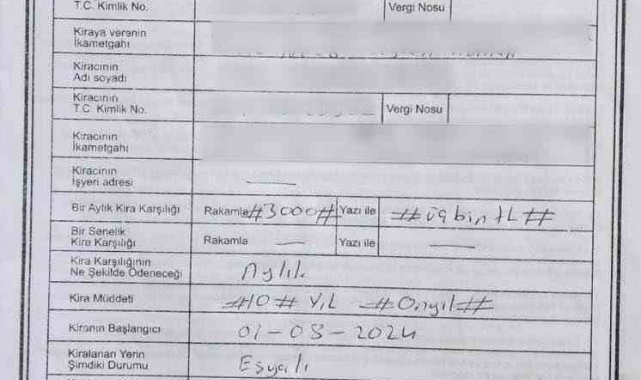 T.C. Kimlik No. Vergi Nosu
Kiraya verenin
İkametgahı
Kiracının
Adı soyadı
Kiracının
T.C. Kimlik No. Vergi Nosu
Kiracının
İkametgahı
Kiracının
İşyeri adresi —
Bir Aylık Kira Karşılığı Rakamla #3000# Yazı ile #üçbin tL#
Bir Senelik
Kira Karşılığı Rakamla — Yazı ile —
Kira Karşılığının
Ne Şekilde Ödeneceği Aylık
Kira Müddeti #10# YIL #Onyıl#
Kiranın Başlangıcı 01-03-2024
Kiralanan Yerin
Şimdiki Durumu Eşyalı